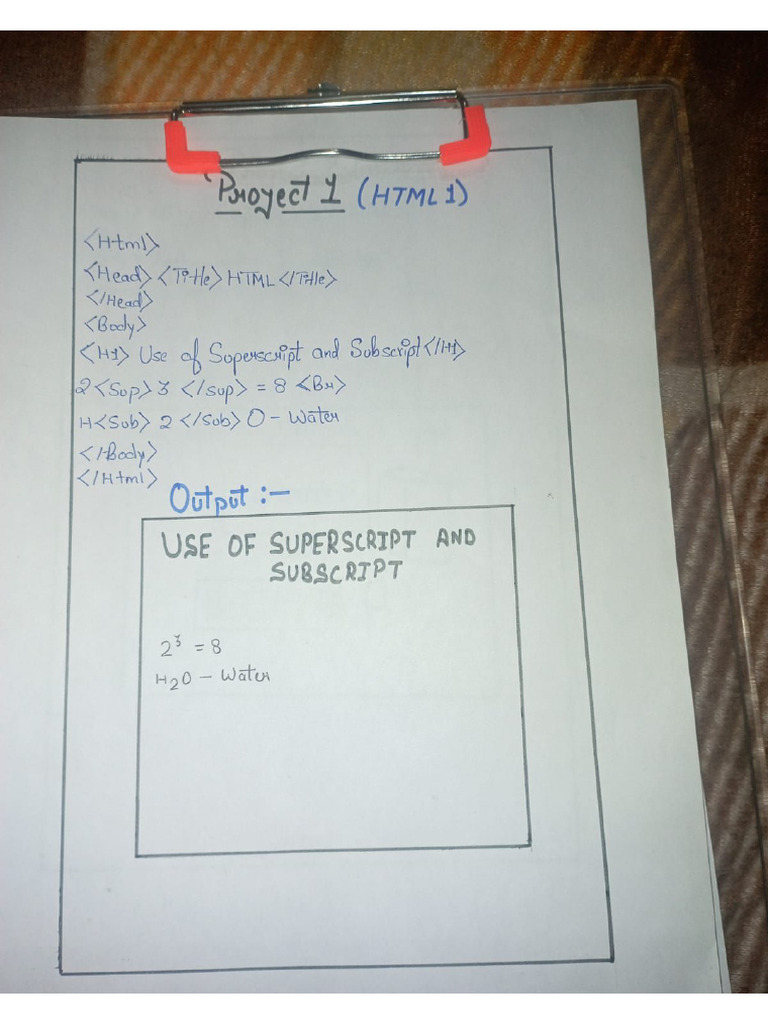 Project 1 (HTML 1)
<Html>
<Head> <Title> HTML </Title>
</Head>
<Body>
<H1> Use of Superscript and Subscript </H1>
2 <Sup> 3 </sup> = 8 <Br>
H <Sub> 2 </Sub> O - Water
</Body>
</Html>
Output :-
USE OF SUPERSCRIPT AND
SUBSCRIPT
2³ = 8
H₂O - Water